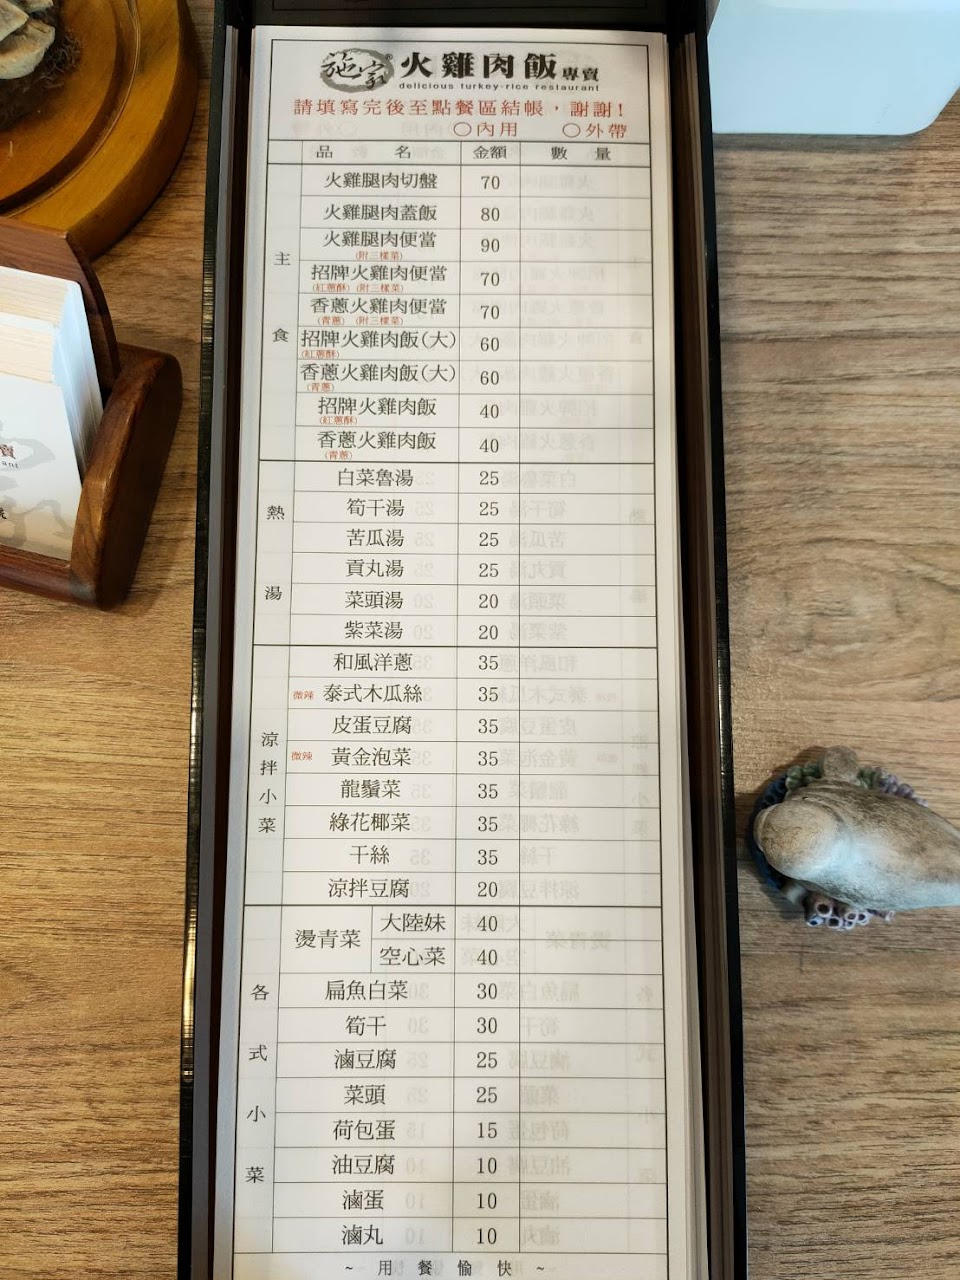 施家 火雞肉飯 專賣
delicious turkey-rice restaurant
請填寫完後至點餐區結帳，謝謝！
○內用 ○外帶
品 名 金額 數 量
主食
火雞腿肉切盤 70
火雞腿肉蓋飯 80
火雞腿肉便當 90
(附三樣菜)
招牌火雞肉便當 70
(紅蔥酥) (附三樣菜)
香蔥火雞肉便當 70
(青蔥) (附三樣菜)
招牌火雞肉飯(大) 60
(紅蔥酥)
香蔥火雞肉飯(大) 60
(青蔥)
招牌火雞肉飯 40
(紅蔥酥)
香蔥火雞肉飯 40
(青蔥)
熱湯
白菜魯湯 25
筍干湯 25
苦瓜湯 25
貢丸湯 25
菜頭湯 20
紫菜湯 20
涼拌小菜
和風洋蔥 35
微辣 泰式木瓜絲 35
皮蛋豆腐 35
微辣 黃金泡菜 35
龍鬚菜 35
綠花椰菜 35
干絲 35
涼拌豆腐 20
各式小菜
燙青菜 大陸妹 40
空心菜 40
扁魚白菜 30
筍干 30
滷豆腐 25
菜頭 25
荷包蛋 15
油豆腐 10
滷蛋 10
滷丸 10
~ 用 餐 愉 快 ~
賣